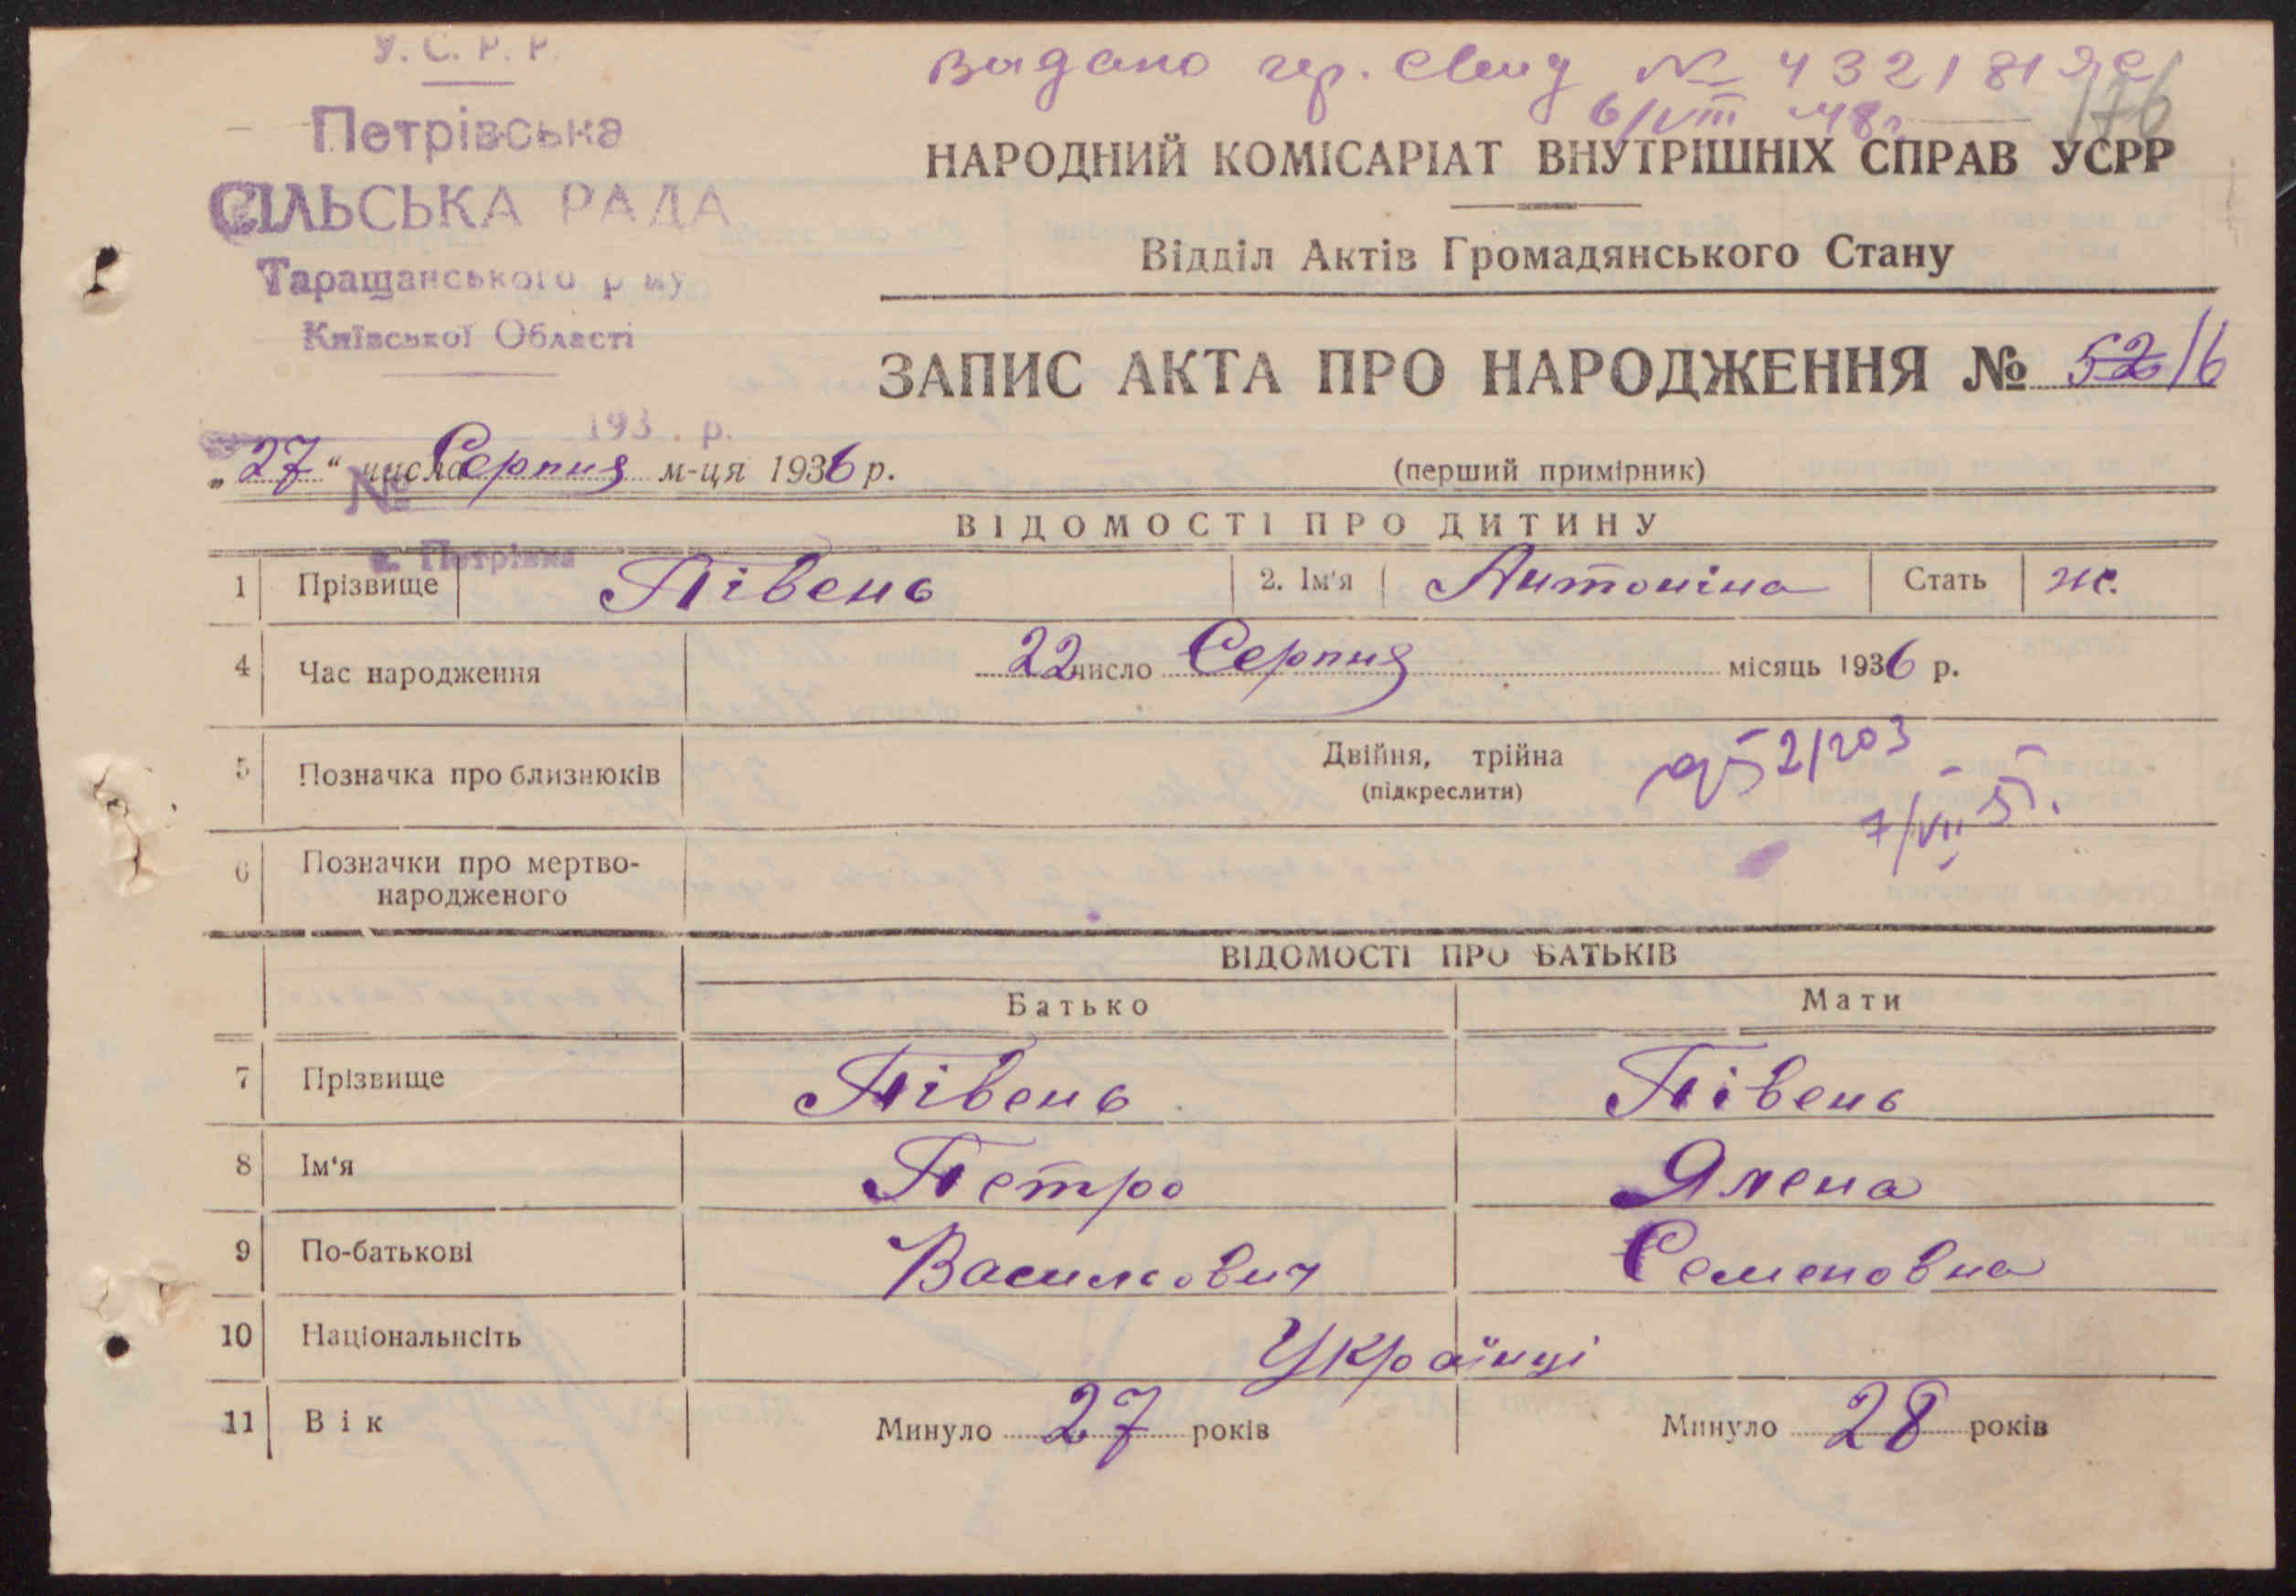 У.С.Р.Р.
Петрівська
СІЛЬСЬКА РАДА
Таращанського р-ну
Київської Області
193 . р.
№
с. Петрівка
Видано гер. свид № 432181
6/VIII 48р
176
НАРОДНИЙ КОМІСАРІАТ ВНУТРІШНІХ СПРАВ УСРР
Відділ Актів Громадянського Стану
ЗАПИС АКТА ПРО НАРОДЖЕННЯ № 52/6
„27“ числа Серпня м-ця 1936 р.
(перший примірник)
ВІДОМОСТІ ПРО ДИТИНУ
1 Прізвище Півень 2. Ім'я Антоніна Стать ж.
4 Час народження 22 число Серпня місяць 1936 р.
5 Позначка про близнюків Двійня, трійна
(підкреслити)
52/203
7/VII 51.
6 Позначки про мертво-
народженого
ВІДОМОСТІ ПРО БАТЬКІВ
Батько Мати
7 Прізвище Півень Півень
8 Ім‘я Петро Ялена
9 По-батькові Василович Семеновна
10 Національнсіть Українці
11 Вік Минуло 27 років Минуло 28 років